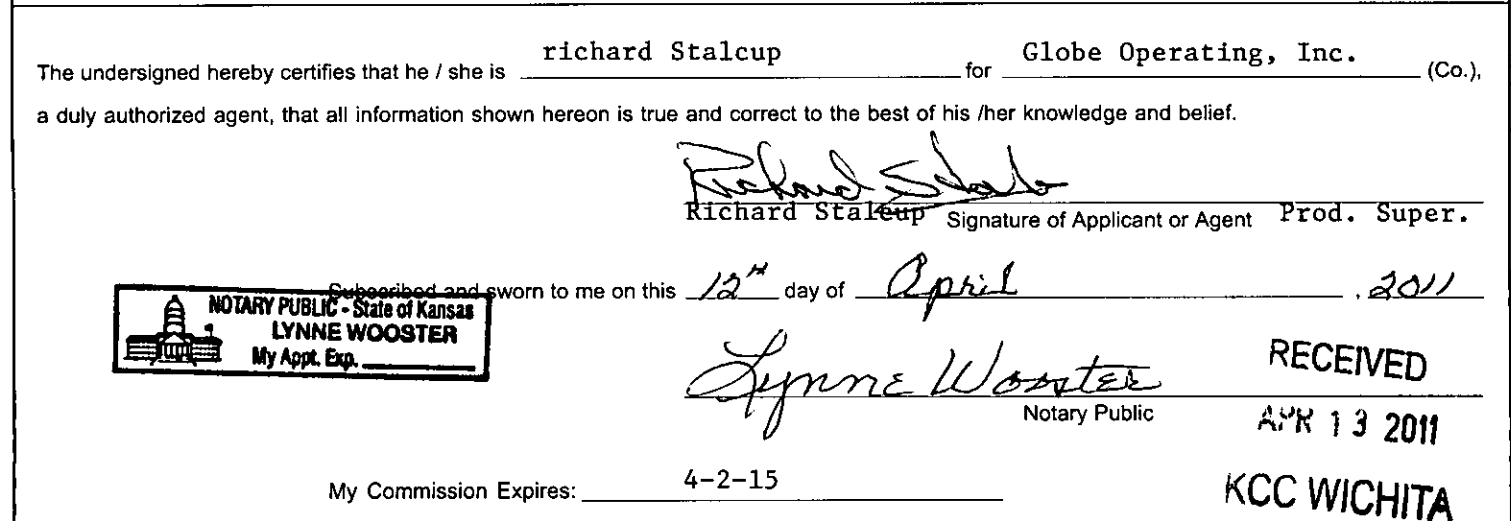 The undersigned hereby certifies that he / she is richard Stalcup for Globe Operating, Inc. (Co.),
a duly authorized agent, that all information shown hereon is true and correct to the best of his /her knowledge and belief.
Richard Stalcup
Richard Stalcup Signature of Applicant or Agent Prod. Super.
Subscribed and sworn to me on this 12th day of April , 2011
NOTARY PUBLIC - State of Kansas
LYNNE WOOSTER
My Appt. Exp.
Lynne Wooster
Notary Public
RECEIVED
APR 13 2011
KCC WICHITA
My Commission Expires: 4-2-15